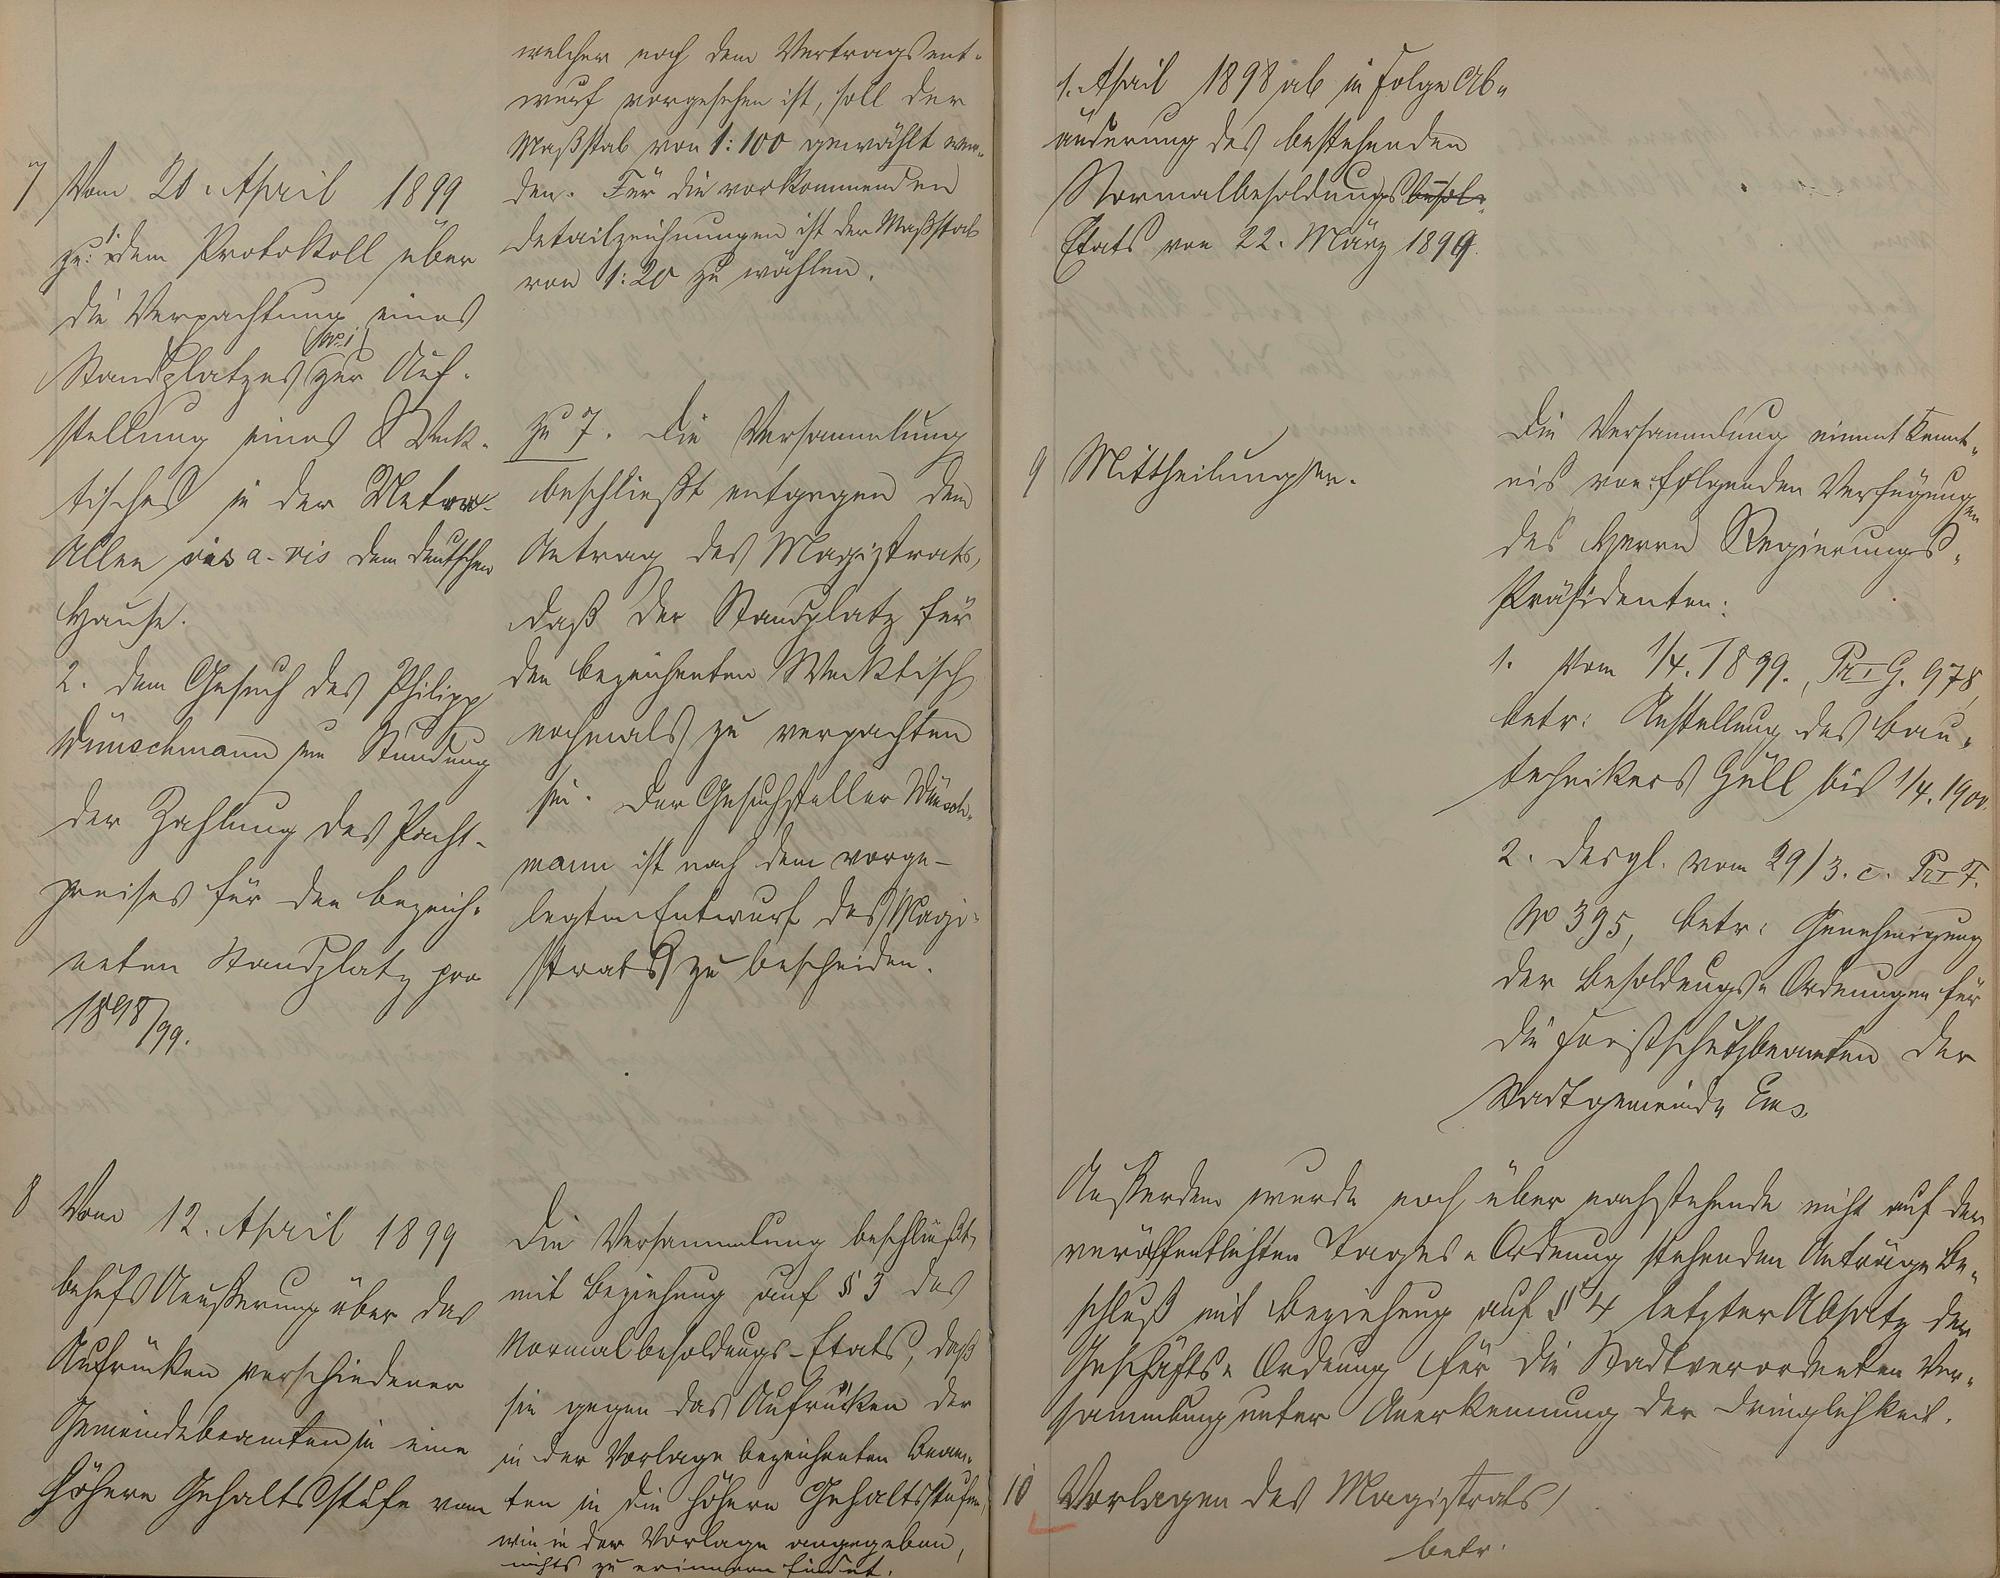 welcher nach dem Vertragsent-
wurf vorgesehen ist, soll der
Maßstab von 1:100 gewählt wer-
den. Für die vorkommenden
Detailzeichnungen ist der Maßstab
von 1:20 zu wählen.
7 Vom 20. April 1899
zu: 1. dem Protokoll über
die Verpachtung eines
Standplatzes zur Auf-
stellung eines
tisches in der
Allee vis a-vis dem deutschen
Hause.
2. dem Gesuch des Philipp
Wünschmann um Stundung
der Zahlung des Pacht-
preises für den bezeich-
neten Standplatz pro
1898/99.
zu 7. Die Versammlung
beschließt entgegen dem
Antrag des Magistrats,
daß der Standplatz für
den bezeichneten
nochmals zu verpachten
sei. Der Gesuchsteller Wünsch-
mann ist nach dem vorge-
legten Entwurf des Magi-
strats zu bescheiden.
8 Vom 12. April 1899
behufs Aeußerung über das
Aufrücken verschiedener
Gemeindebeamten in eine
höhere Gehaltsstufe vom
Die Versammlung beschließt,
mit Beziehung auf § 3 des
Normalbesoldungs-Etats, daß
sie gegen das Aufrücken der
in der Vorlage bezeichneten Beam-
ten in die höhere Gehaltsstufen,
wie in der Vorlage angegeben,
nichts zu erinnern findet.
1. April 1898 ab in Folge Ab-
änderung des bestehenden
Normalbesoldungs
Etats von 22. März 1899.
9 Mittheilungen.
Die Versammlung nimmt Kennt-
nis von folgenden Verfügungen
des Herrn Regierungs-
Präsidenten:
1. vom 1/4. 1899., Pr I G. 978,
betr: Anstellung des Bau-
technikers Güll bis 1/4. 1900.
2. desgl. vom 29/3. c. Pr I F.
No 395, betr: Genehmigung
der Besoldungs-Ordnungen für
die Forstschutzbeamten der
Stadtgemeinde Ems.
Außerdem wurde noch über nachstehende nicht auf der
veröffentlichten Tages-Ordnung stehenden Anträge Be-
schluß mit Beziehung auf § 4 letzter Absatz der
Geschäfts-Ordnung für die Stadtverordneten Ver-
sammlung unter Anerkennung der Dringlichkeit.
10 Vorlagen des Magistrats,
betr.